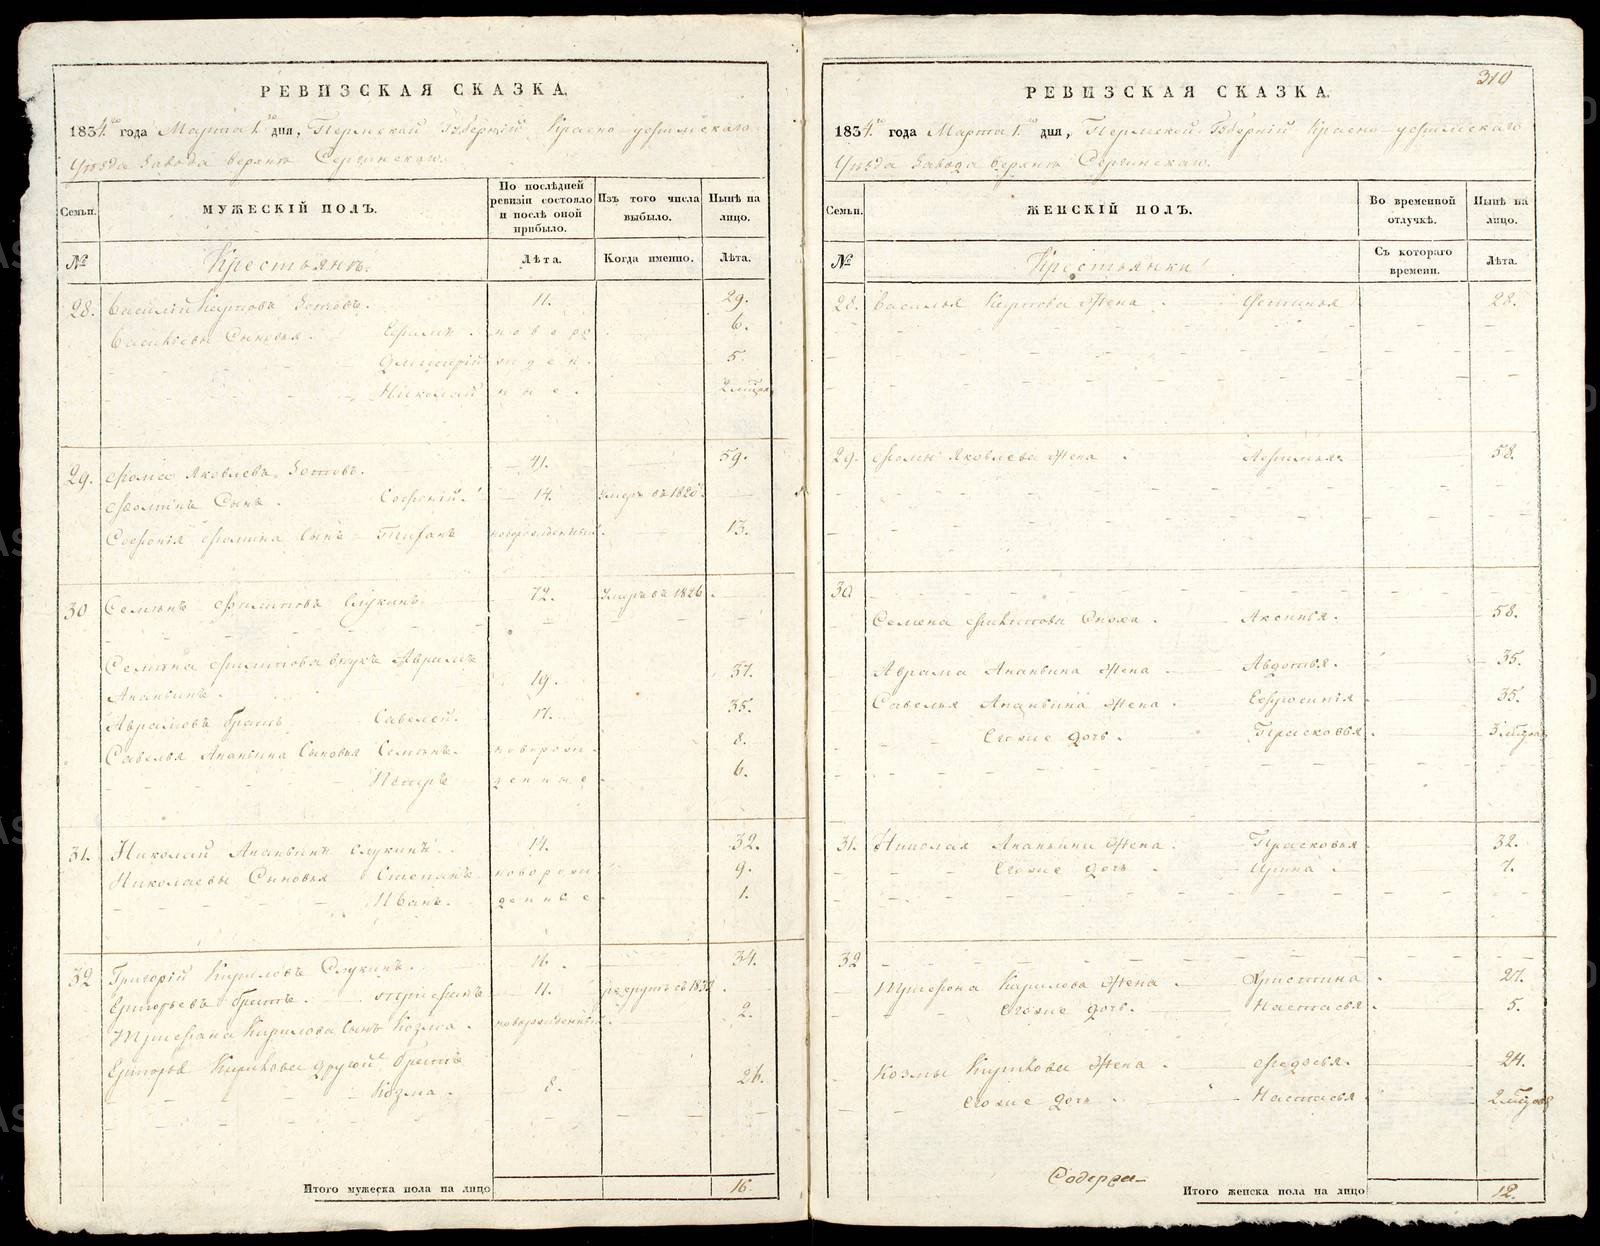 РЕВИЗСКАЯ СКАЗКА.
1834го года Марта 1го дня, Пермской Губернiи Красно-уфимскаго
Уѣзда Завода Верхнѣ Сергинскаго.
Семьи.
МУЖЕСКIЙ ПОЛЪ.
По послѣдней ревизiи состояло и послѣ оной прибыло.
Изъ того числа выбыло.
Нынѣ на лицо.
№
Крестьянъ.
Лѣта.
Когда именно.
Лѣта.
28. Василiй Карпова Зотовъ. 11. 29.
Васильевы Сыновья. Ефимъ. новоро 6.
Дмитрiй жден 5.
Николай ные.
29. Фома Яковлевъ Зотовъ. 41. 59.
Фоминъ Сынъ. Софонiй. 14. умеръ въ 182
Софонiя Фомина Сынъ новорожденный. 13.
30 Семенъ Филипова Слукинъ. 72. Умеръ въ 1826
Семена Филипова внукъ Аврамъ
Ананьинъ. 19. 37.
Аврамовъ братъ Савелей. 17. 35.
Савелья Ананьина Сыновья Семенъ. новорож 8.
Петръ денные 6.
31. Николай Ананьинъ Слукинъ. 14. 32.
Николаевы Сыновья Степанъ новорож 9.
Иванъ. денные. 1.
32 Григорiй Кириловъ Слукинъ. 34.
Григорьевъ братъ. Трифанъ 11. рекрутъ съ 183
Трифана Кирилова Сынъ Козма. новорожденный 2.
Григорья Кирилова другой братъ
Козма. 8. 26.
Итого мужеска пола на лицо 16.
310
РЕВИЗСКАЯ СКАЗКА.
1834го года Марта 1го дня, Пермской Губернiи Красно-уфимскаго
Уѣзда Завода Верхнѣ Сергинскаго.
Семьи.
ЖЕНСКIЙ ПОЛЪ.
Во временной отлучкѣ.
Нынѣ на лицо.
№
Крестьянки
Съ котораго времени.
Лѣта.
28. Василья Карпова Жена Фетинья 28.
29. Фомы Яковлева Жена 58.
30.
Семена Филипова Сноха. Аксинья. 58.
Аврама Ананьина Жена Авдотья. 35.
Савелья Ананьина Жена. Ефросинiя 35.
Егоже дочь. Прасковья
31. Николая Ананьина Жена. Прасковья 32.
Егоже дочь Арина 7.
32
Трифона Кирилова Жена Христина 27.
Егоже дочь. Настасья 5.
Козмы Кирилова Жена. Федосья. 24.
Егоже дочь Настасья
Содержа-
Итого женска пола на лицо 12.